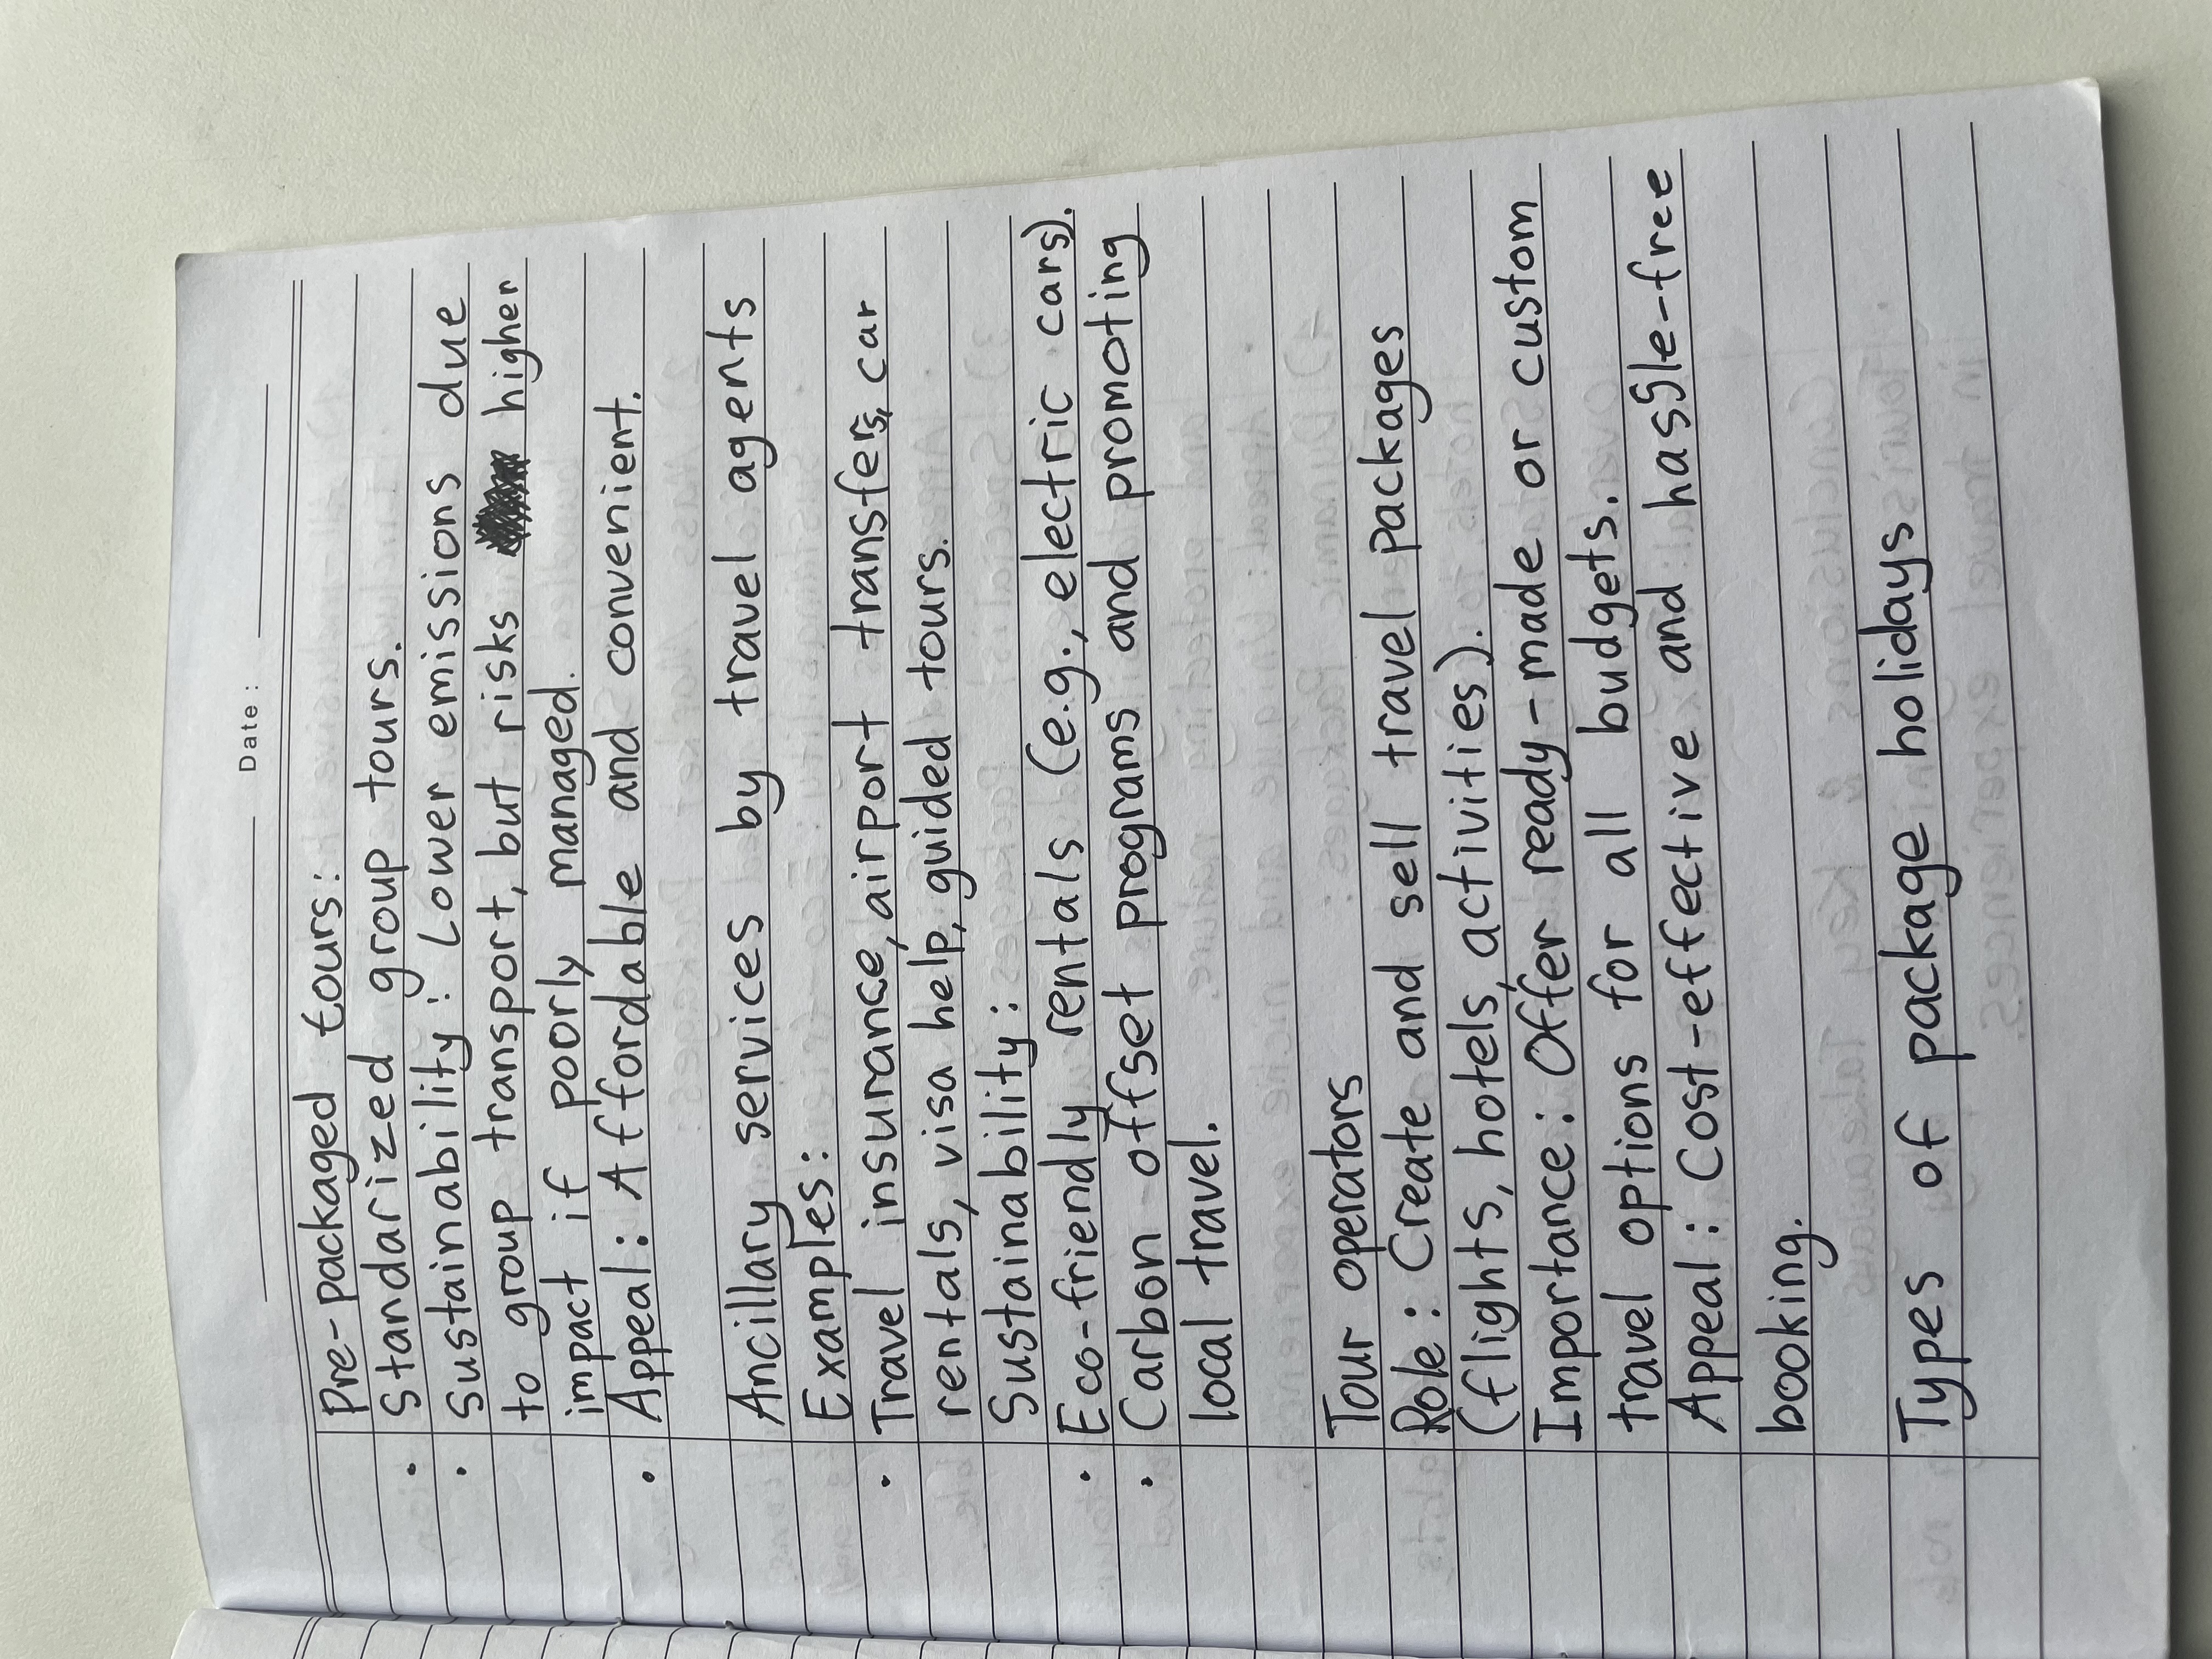 Date:
Pre-packaged tours:
• Standarized group tours.
• Sustainability: Lower emissions due
to group transport, but risks higher
impact if poorly managed.
• Appeal: Affordable and convenient.
Ancillary services by travel agents
Examples:
• Travel insurance, airport transfers, car
rentals, visa help, guided tours.
Sustainability:
• Eco-friendly rentals (e.g., electric cars).
• Carbon-offset programs and promoting
local travel.
Tour operators
Role: Create and sell travel packages
(flights, hotels, activities).
Importance: Offer ready-made or custom
travel options for all budgets.
Appeal: Cost-effective and hassle-free
booking.
Types of package holidays